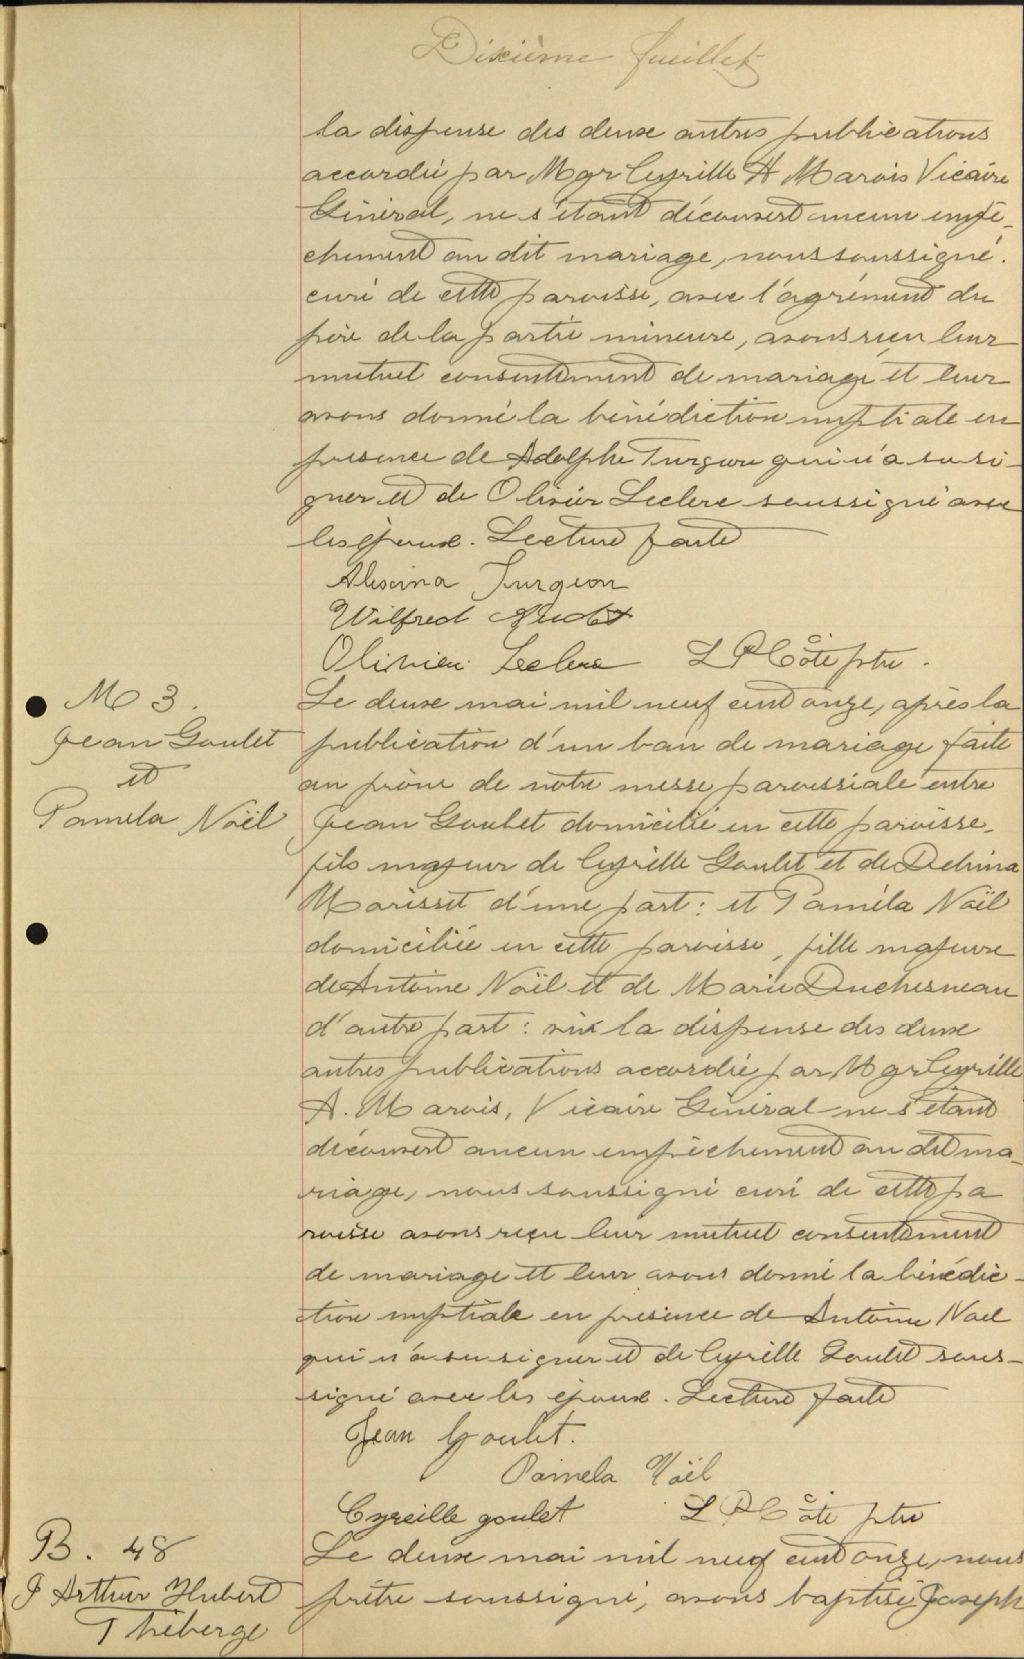 Dixième feuillet
la dispense des deux autres publications
accordée par Mgr Cyrille A Marois Vicaire
Général, ne s'étant découvert aucun empê-
chement au dit mariage, nous soussigné.
curé de cette paroisse, avec l'agrément du
père de la partie mineure, avons reçu leur
mutuel consentement de mariage et leur
avons donné la bénédiction nuptiale en
presence de Adolphe Turgeon qui n'a su si-
gner et de Olivier Leclerc soussigné avec
les époux. Lecture faite
Alexina Turgeon
Wilfred
Olivier Leclerc L P Côté ptre.
M 3.
Jean Goulet
et
Pamela Noël
Le deux mai mil neuf cent onze, après la
publication d'un ban de mariage faite
au prône de notre messe paroissiale entre
Jean Goulet domicilié en cette paroisse,
fils majeur de Cyrille Goulet et de Delvina
Morisset d'une part: et Paméla Noël
domiciliée en cette paroisse, fille majeure
de Antoine Noël et de Marie Duchesneau
d'autre part: vu la dispense des deux
autres publications accordée par Mgr Cyrille
A. Marois, Vicaire Général ne s'étant
découvert aucun empêchement au dit ma-
riage, nous soussigné curé de cette pa
roisse avons reçu leur mutuel consentement
de mariage et leur avons donné la bénédic-
tion nuptiale en présence de Antoine Noel
qui n'a su signer et de Cyrille Goulet sous-
signé avec les époux. Lecture faite
Jean Goulet.
Pamela Noël
Cyreille goulet L P Côté ptre
B. 48
J Arthur Hubert
Théberge
Le deux mai mil neuf cent onze, nous
prêtre soussigné, avons baptisé Joseph